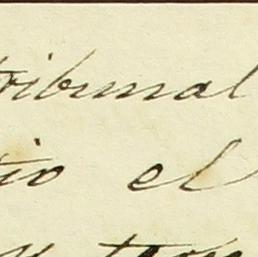 tribunal
tio el